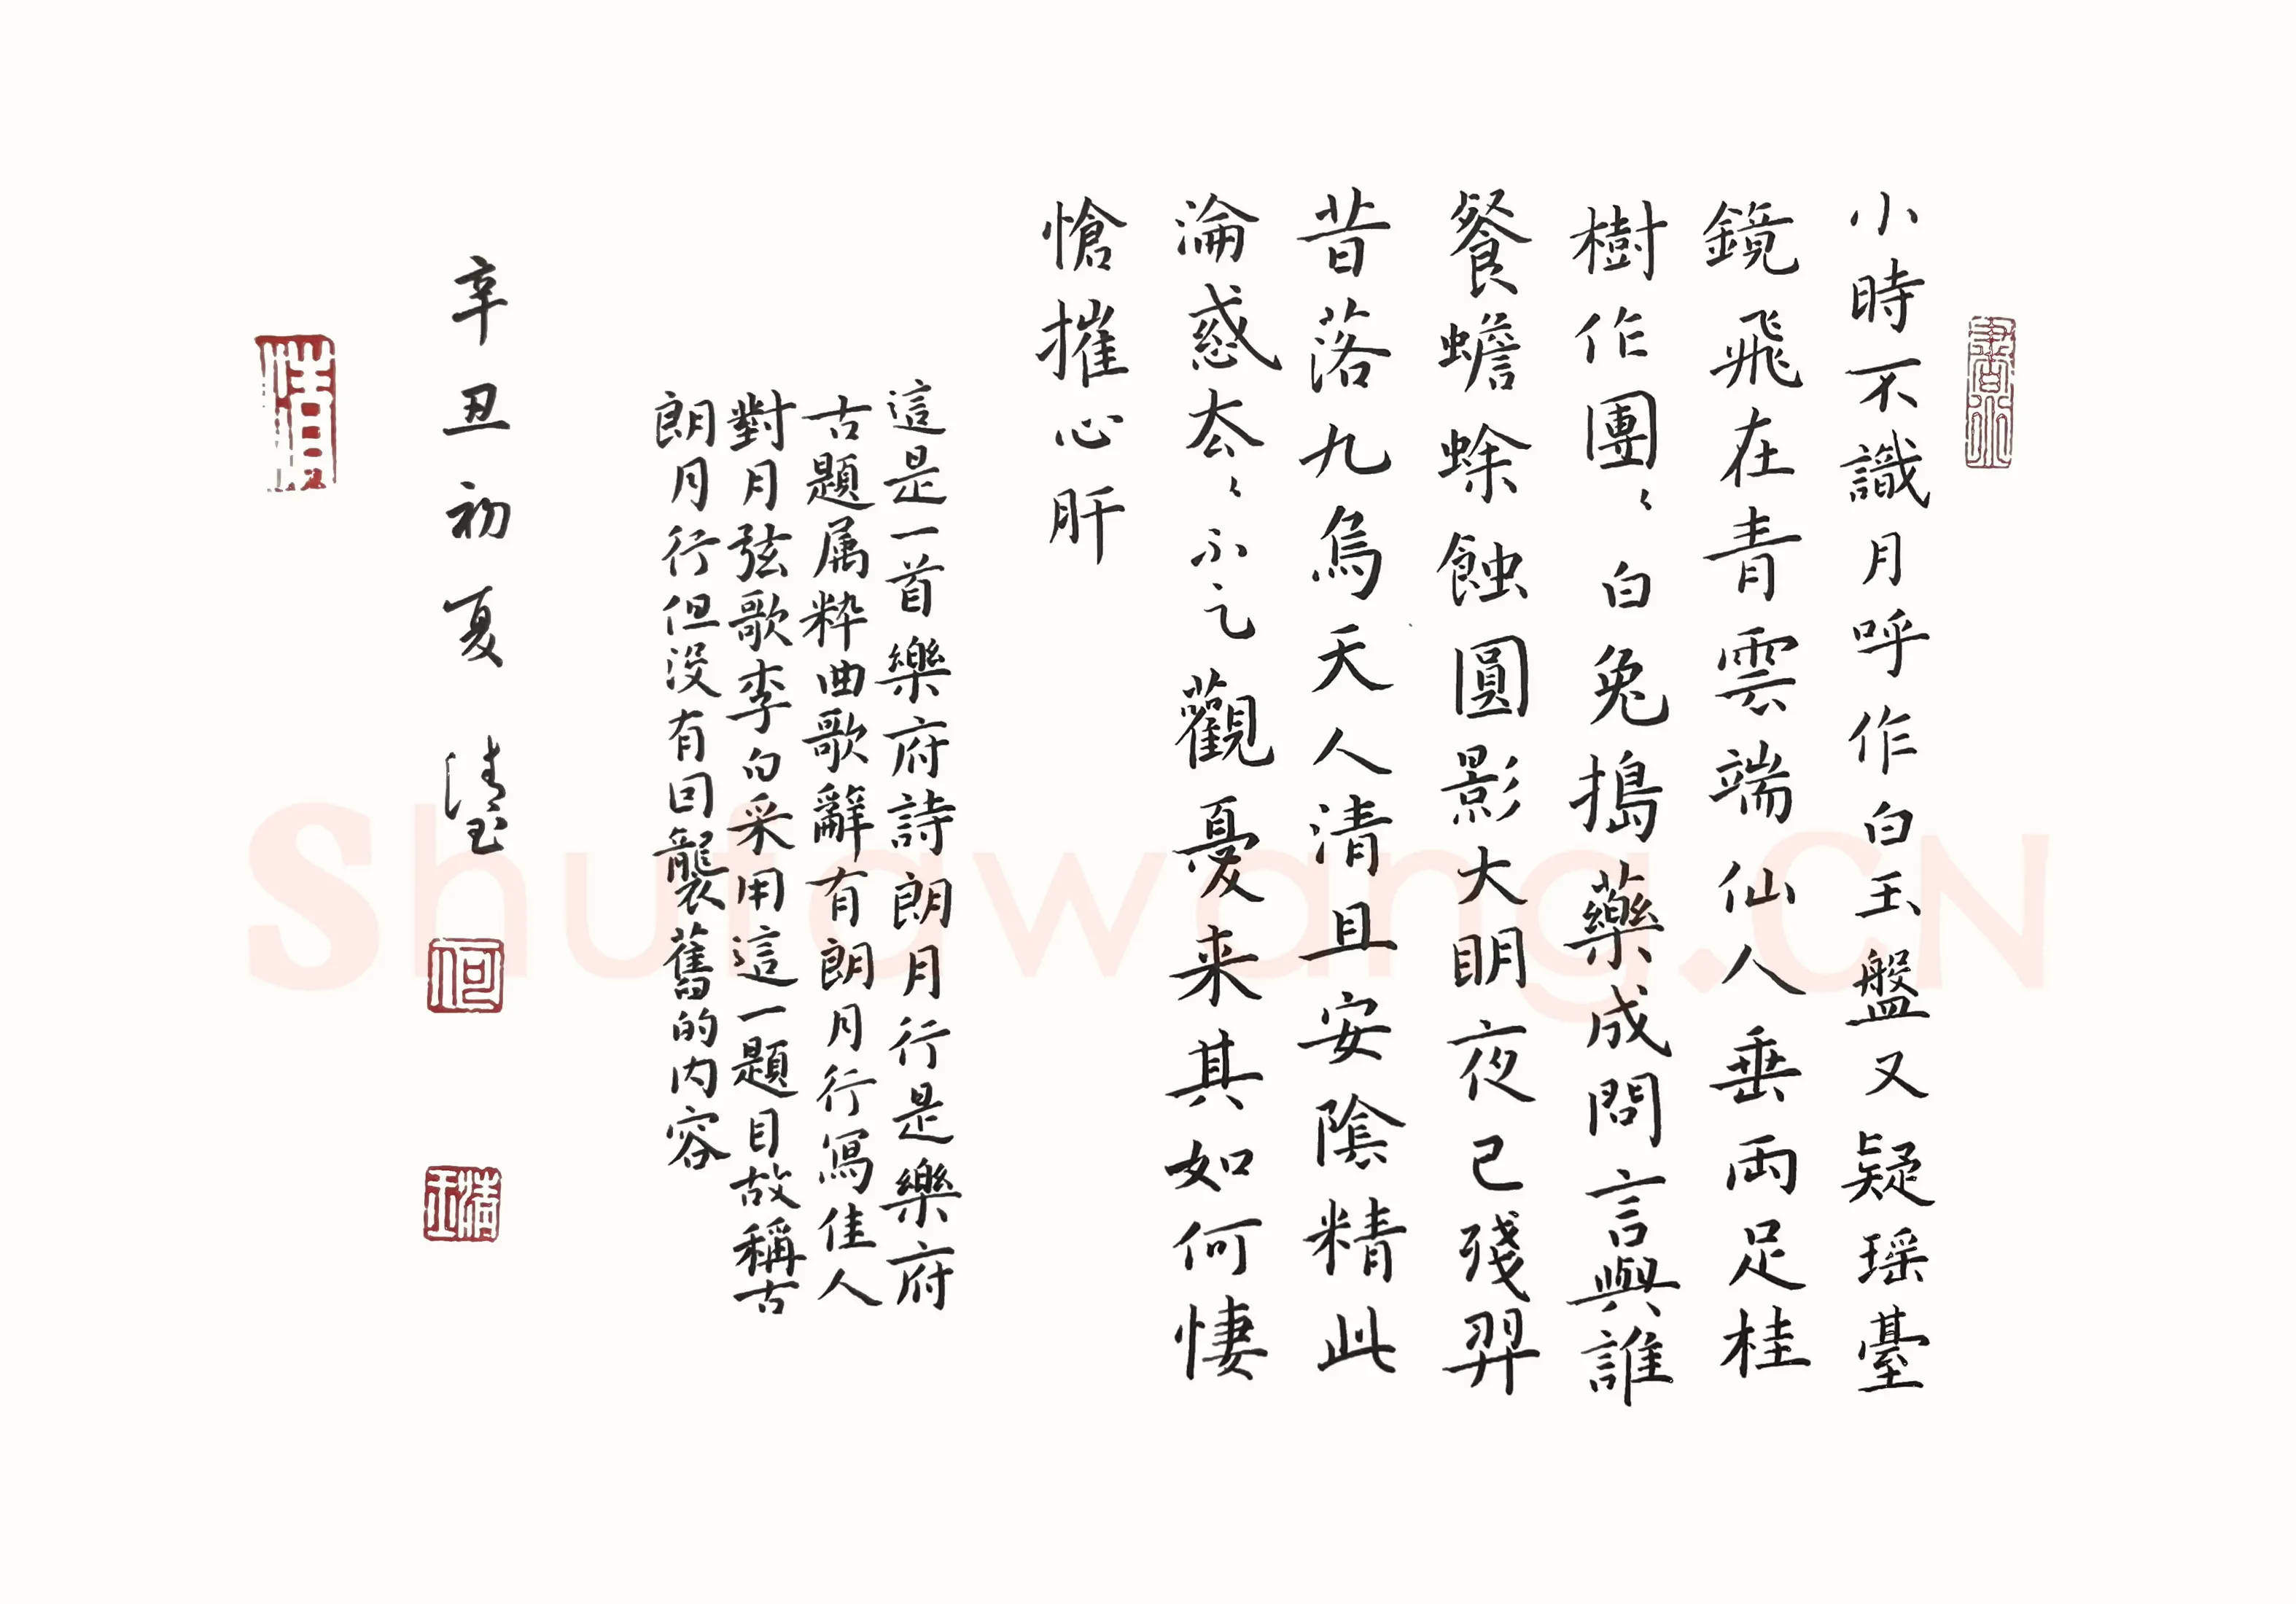 小時不識月呼作白玉盤又疑瑶臺
鏡飛在青雲端仙人垂兩足桂
樹作團〻白兔搗藥成問言與誰
餐蟾蜍蝕圓影大明夜已殘羿
昔落九烏天人清且安陰精此
淪惑去〻不足觀憂来其如何悽
愴摧心肝
這是一首樂府詩朗月行是樂府
古題属粋曲歌辭有朗月行寫佳人
對月弦歌李白采用這一題目故稱古
朗月行但没有囙襲舊的内容
辛丑初夏 清玉
何
清玉
Shufawang.CN